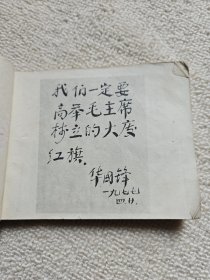 我们一定要
高举毛主席
树立的大庆
红旗。
华国锋
一九七七
四、廿、